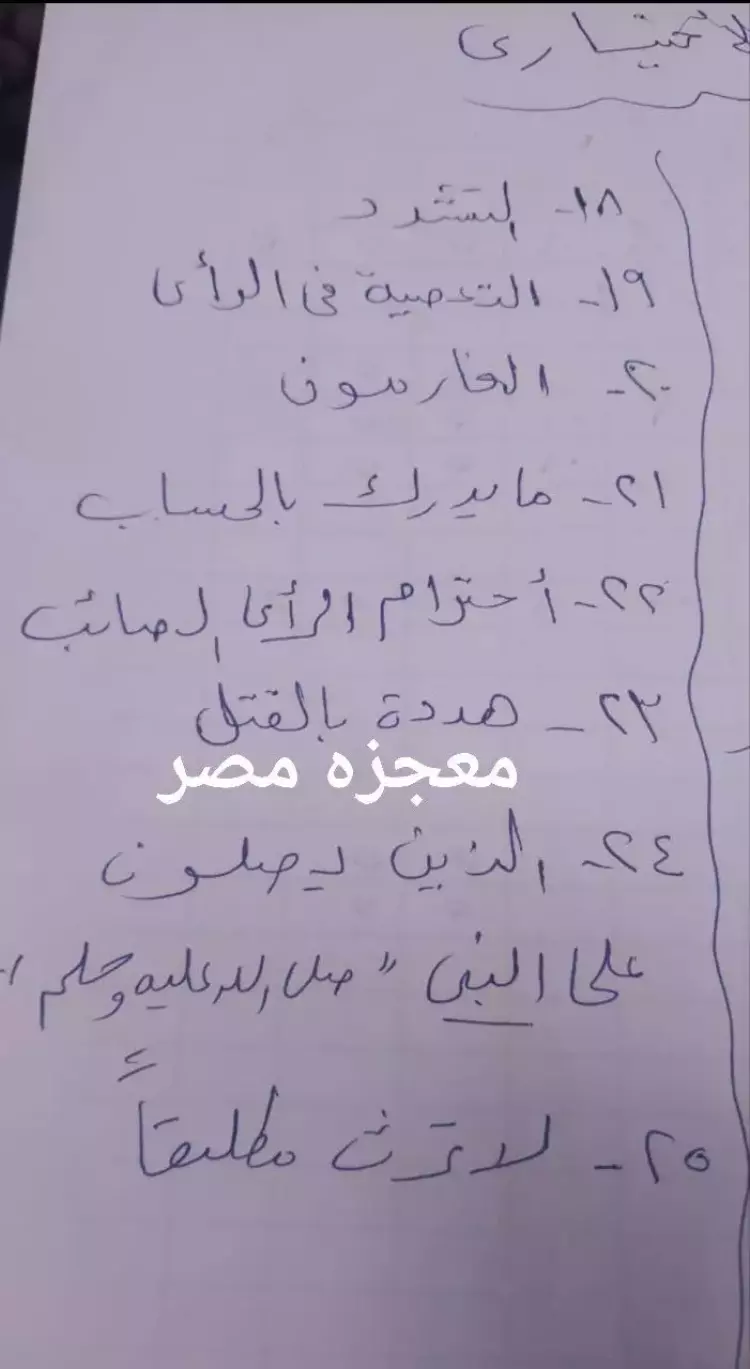 الاختيارى
١٨- التشدد
١٩- التعصية فى الرأى
٢٠- الغارمون
٢١- ما يدرك بالحساب
٢٢- أحترام الرأى الصائب
٢٣- هددة بالقتل
معجزه مصر
٢٤- الذين يصلون
على النبي "صلى الله عليه وسلم"
٢٥- لا ترث مطلقاً